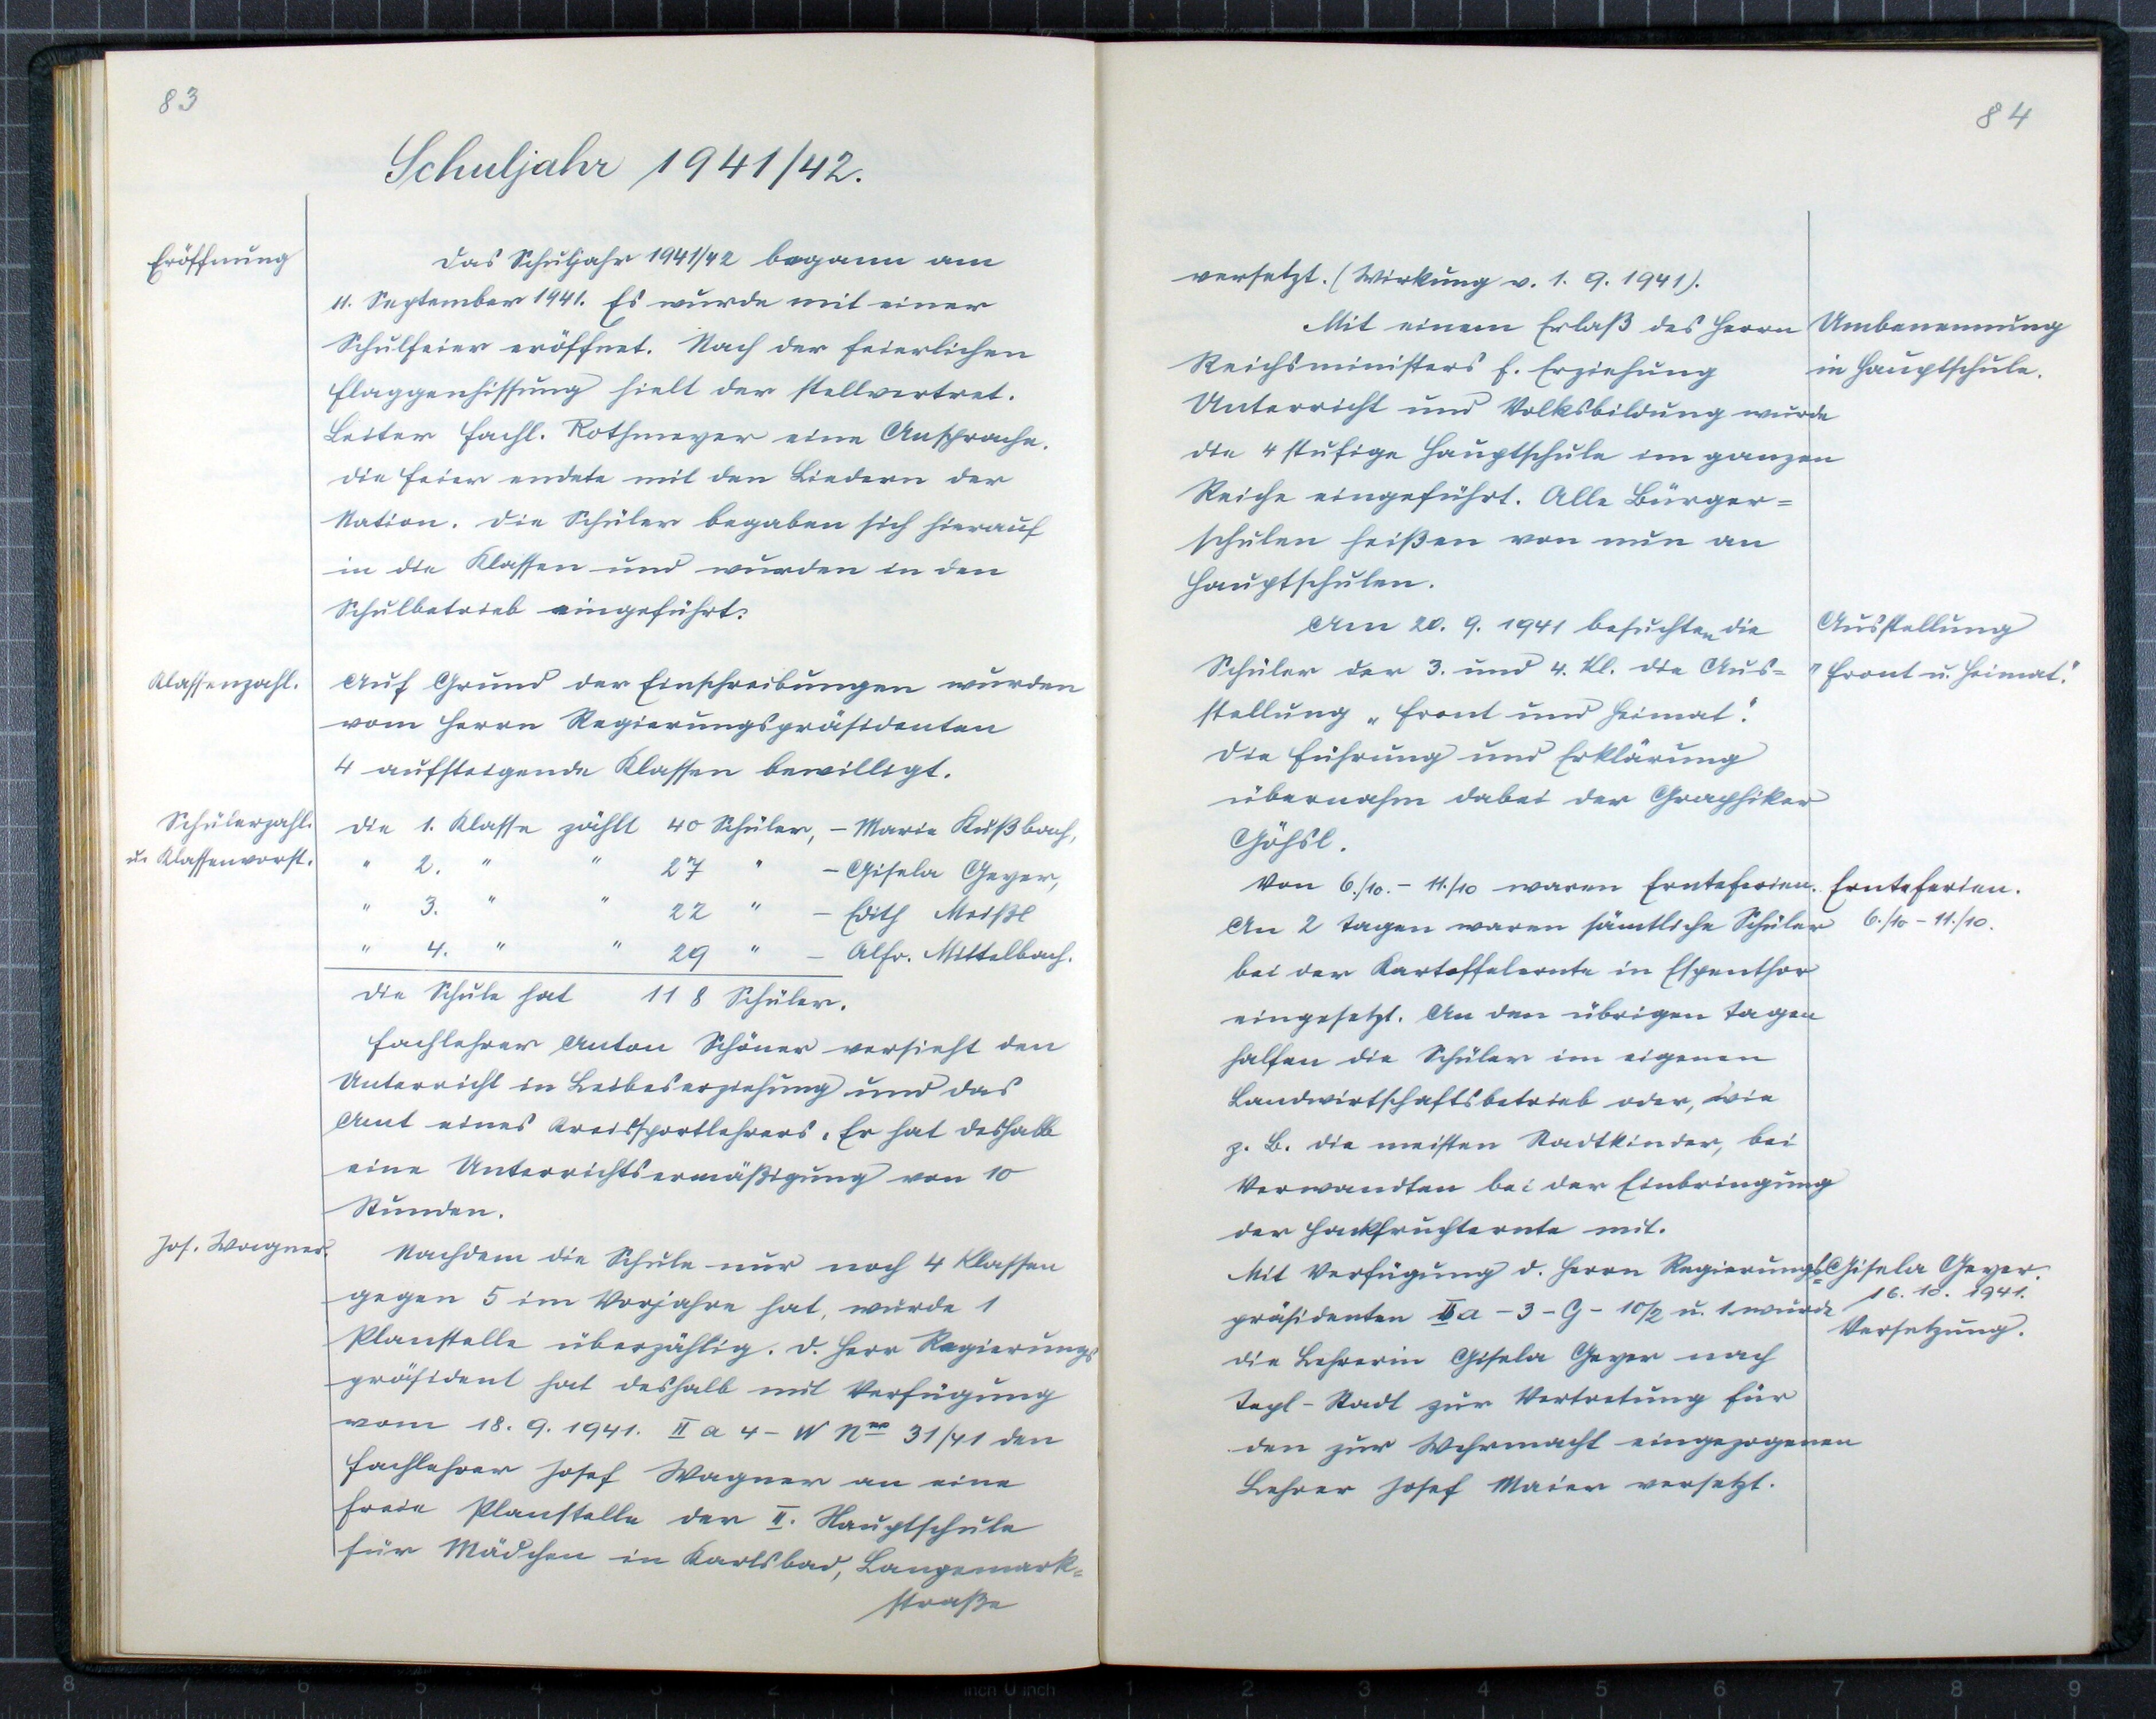 83
Schuljahr 1941/42.
Eröffnung
Das Schuljahr 1941/42 begann am
11. September 1941. Es wurde mit einer
Schulfeier eröffnet. Nach der feierlichen
Flaggenhissung hielt der stellvertret.
Leiter Fachl. Rothmeyer eine Ansprache.
Die Feier endete mit den Liedern der
Nation. Die Schüler begaben sich hierauf
in die Klassen und wurden in den
Schulbetrieb eingeführt.
Klassenzahl.
Auf Grund der Einschreibungen wurden
vom Herrn Regierungspräsidenten
4 aufsteigende Klassen bewilligt.
Schülerzahl.
u. Klassenvorst.
Die 1. Klasse zählt 40 Schüler, – Marie Kußbach,
" 2. " " 27 " – Gisela Geyer,
" 3. " " 22 " – Edith Meißl
" 4. " " 29 " – Alfr. Mittelbach.
Die Schule hat 118 Schüler.
Fachlehrer Anton Schöner versieht den
Unterricht in Leibeserziehung und das
Amt eines Kreissportlehrers. Er hat deshalb
eine Unterrichtsermäßigung von 10
Stunden.
Jos. Wagner.
Nachdem die Schule nur noch 4 Klassen
gegen 5 im Vorjahre hat, wurde 1
Planstelle überzählig. D. Herr Regierungs
präsident hat deshalb mit Verfügung
vom 18. 9. 1941. II a 4 – W Nro 31/41 den
Fachlehrer Josef Wagner an eine
freie Planstelle der II. Hauptschule
für Mädchen in Karlsbad, Langemark=
straße
84
versetzt. (Wirkung v. 1. 9. 1941).
Mit einem Erlaß des Herrn
Reichsministers f. Erziehung
Unterricht und Volksbildung wurde
die 4 stufige Hauptschule im ganzen
Reiche eingeführt. Alle Bürger=
schulen heißen von nun an
Hauptschulen.
Umbenennung
in Hauptschule.
Am 20. 9. 1941 besuchten die
Schüler der 3. und 4. Kl. die Aus=
stellung „Front und Heimat".
Die Führung und Erklärung
übernahm dabei der Graphiker
Göhsl.
Ausstellung
"Front u. Heimat".
Von 6./10. – 11./10 waren Ernteferien.
An 2 Tagen waren sämtliche Schüler
bei der Kartoffelernte in Espenthor
eingesetzt. An den übrigen Tagen
halfen die Schüler im eigenen
Landwirtschaftsbetrieb oder, wie
z. B. die meisten Stadtkinder, bei
Verwandten bei der Einbringung
der Hackfruchternte mit.
Ernteferien.
6./10 – 11./10.
Mit Verfügung d. Herrn Regierungs=
präsidenten II a – 3 – G – 10/2 u. 1 wurde
die Lehrerin Gisela Geyer nach
Tepl-Stadt zur Vertretung für
den zur Wehrmacht eingezogenen
Lehrer Josef Maier versetzt.
Gisela Geyer.
16. 10. 1941.
Versetzung.
8 7 6 5 4 3 2 1 inch 0 inch 1 2 3 4 5 6 7 8 9